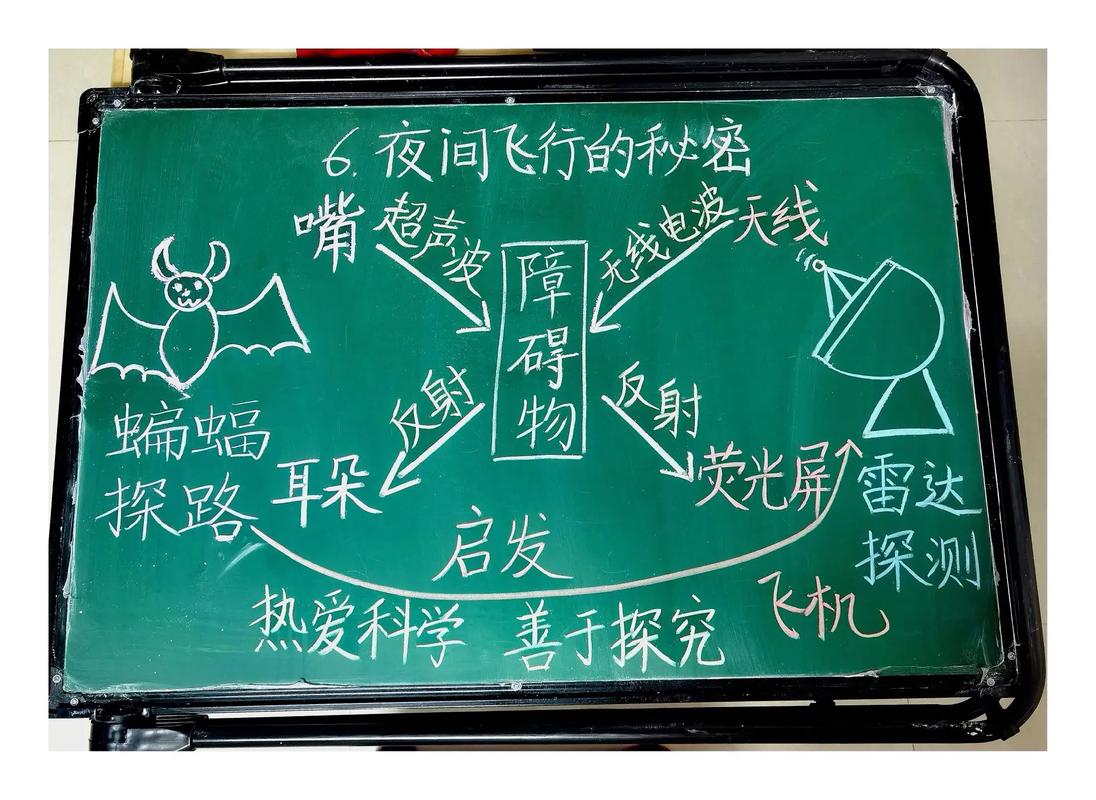 6. 夜间飞行的秘密
嘴 超声波 无线电波 天线
障碍物
反射 反射
蝙蝠 耳朵 荧光屏 雷达
探路 探测
启发
飞机
热爱科学 善于探究